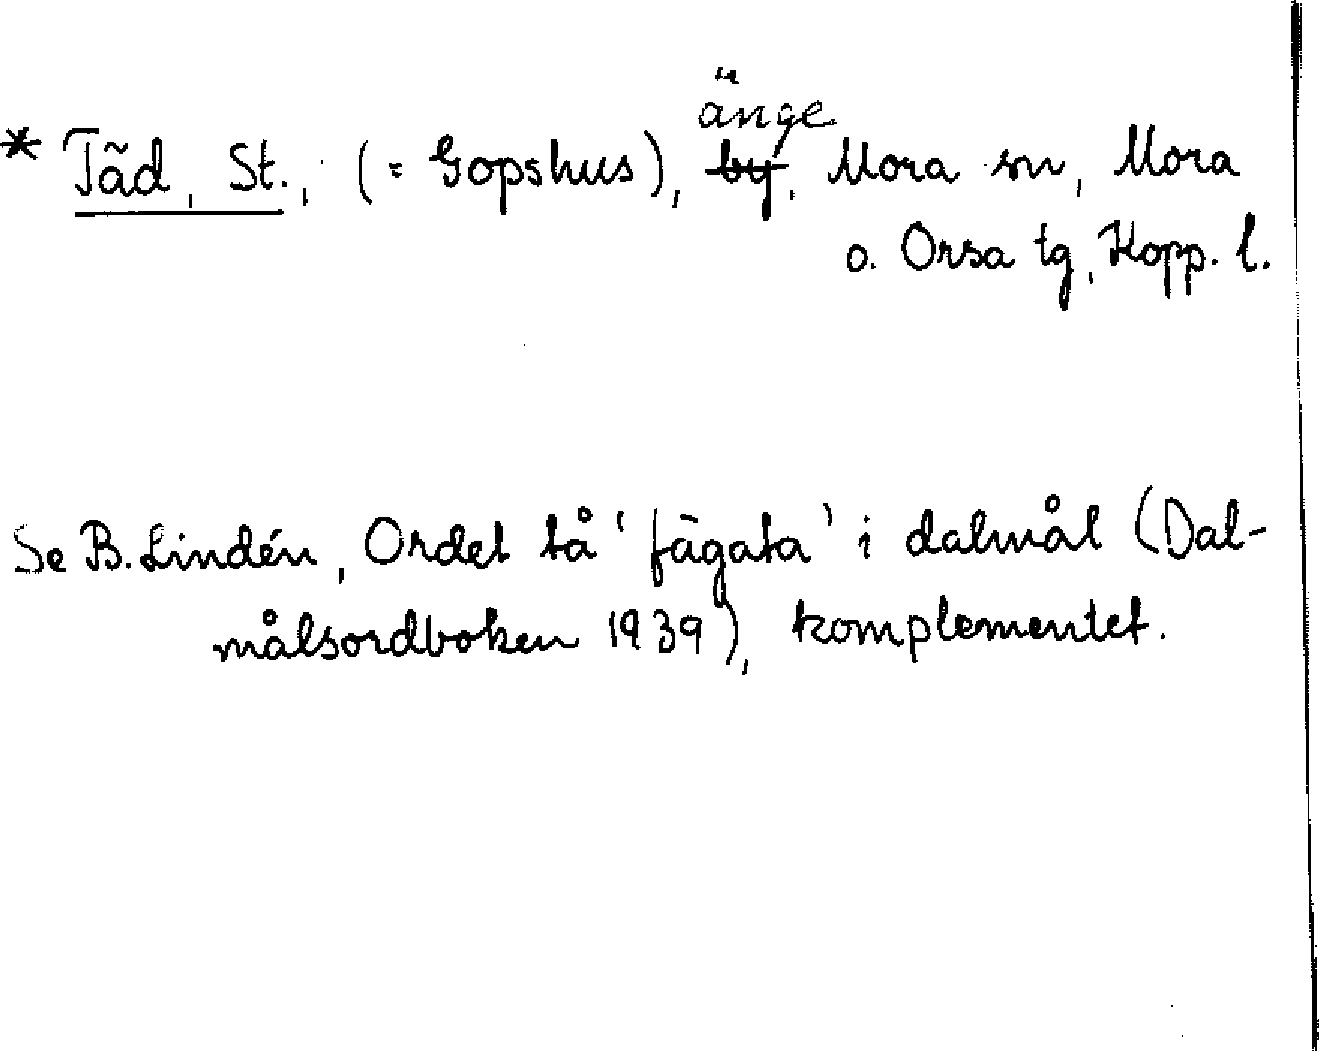 * Täd, St., (= Gopshus), by, änge Mora sn, Mora
o. Orsa tg, Kopp. l.
Se B. Lindén, Ordet tå 'fägata' i dalmål (Dal-
målsordboken 1939), komplementet.